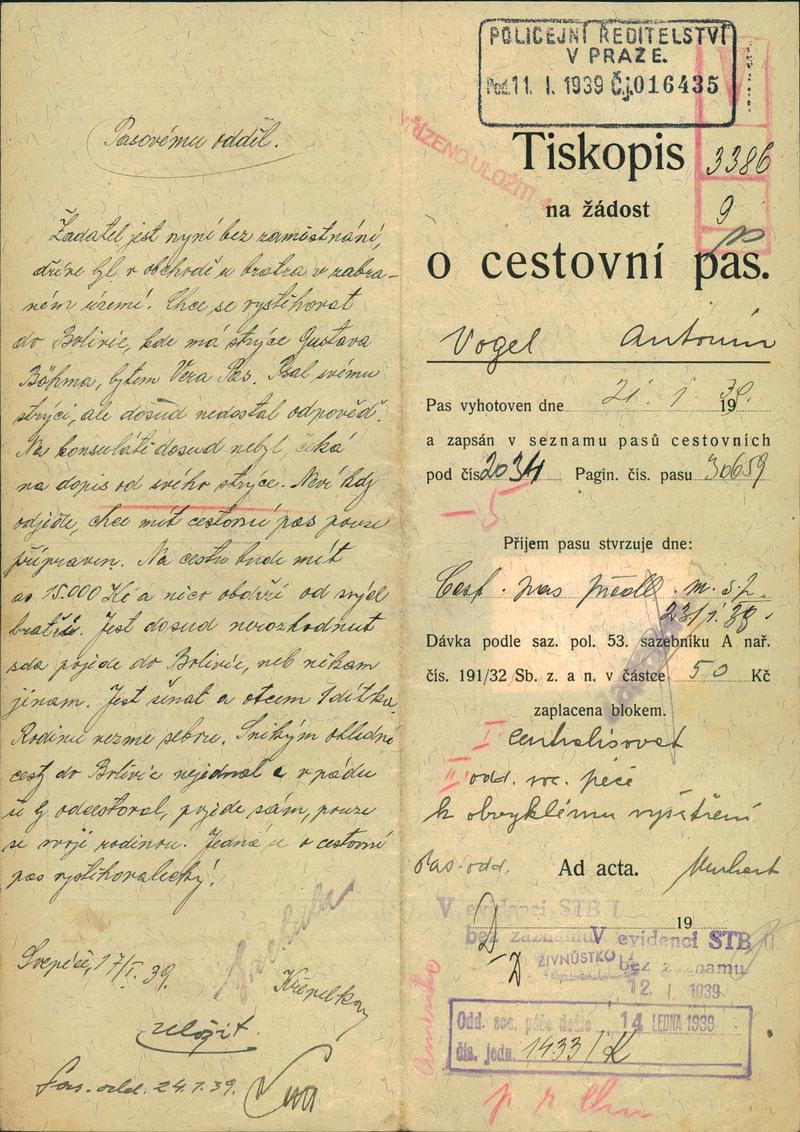 Pasovému odděl.
Žadatel jest nyní bez zaměstnání,
dříve byl v obchodě u bratra v zabra-
ném území. Chce se vystěhovat
do Bolivie, kde má strýce Gustava
Böhma, bytem Vera Pas. Psal svému
strýci, ale dosud nedostal odpověď.
Na konsuláti dosud nebyl, čeká
na dopis od svého strýce. Neví kdy
odjede, chce míti cestovní pas pouze
připraven. Na cestu bude mít
as 15.000 Kč a něco obdrží od svých
bratří. Jest dosud nerozhodnut
zda pojede do Bolivie, neb někam
jinam. Jest ženat a otcem 1 dítka.
Rodinu vezme sebou. S nikým ohledně
cesty do Bolivie nejednal a v pádu
že by odcestoval, pojede sám, pouze
se svojí rodinou. Jedná se o cestovní
pas vystěhovalecký!
17/I. 39.
Křepelka
uložit.
Pas. odd. 24.1.39.
POLICEJNÍ ŘEDITELSTVÍ
V PRAZE.
Pod. 11. I. 1939 Č.j. 016435
VYŘÍZENO ULOŽITI
Tiskopis
3386
na žádost
9
o cestovní pas.
Vogel Antonín
Pas vyhotoven dne 21. I. 1939.
a zapsán v seznamu pasů cestovních
pod čís. 2034 Pagin. čís. pasu 30659
5
Příjem pasu stvrzuje dne:
Cest. pas předl. m. s. p.
23/1.39.
Dávka podle saz. pol. 53. sazebníku A nař.
čís. 191/32 Sb. z. a n. v částce 50 Kč
zaplacena blokem.
I centralisovat
II odd. soc. péče
k obvyklému vyšetření
Pas. odd. Ad acta.
V evidenci STB I.
19
bez záznamu
V evidenci STB II
ŽIVNOSTKO
bez záznamu
12. I. 1939
Odd. soc. péče došlo 14 LEDNA 1939
čís. jedn. 1433/K